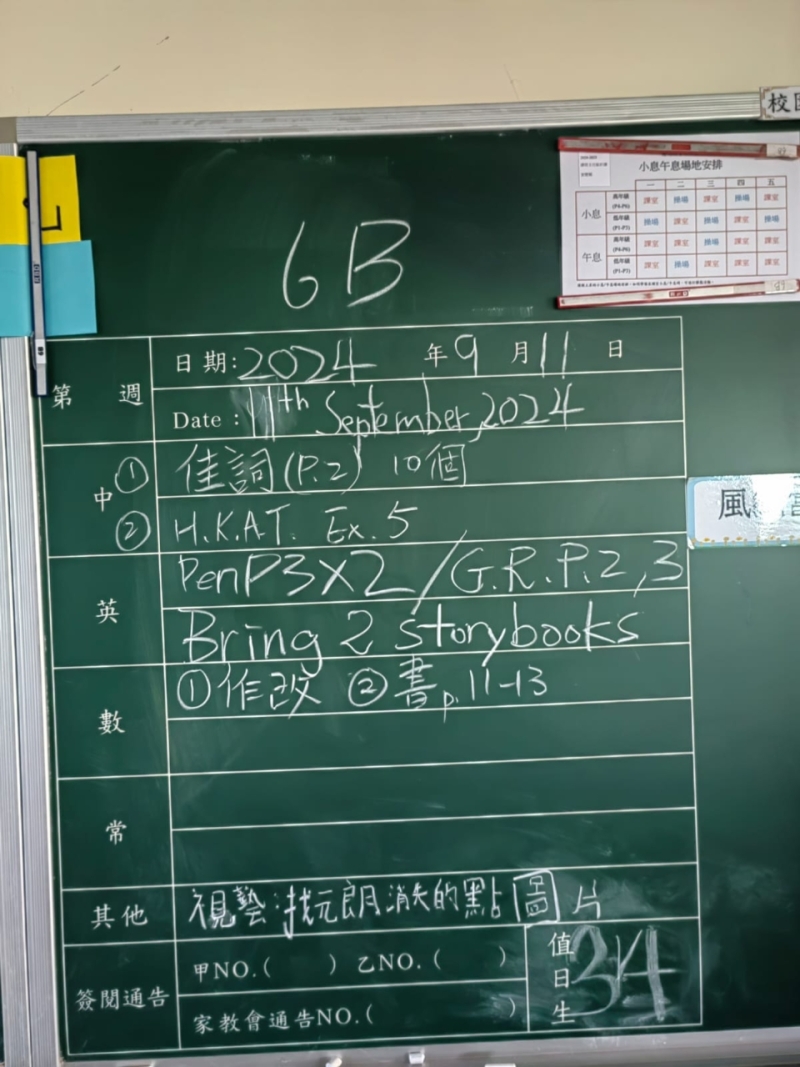 校
小息午息場地安排
一 二 三 四 五
小息 高年級 (P4-P6) 課室 操場 課室 操場 課室
低年級 (P1-P3) 操場 課室 操場 課室 操場
午息 高年級 (P4-P6) 課室 課室 操場 課室 課室
低年級 (P1-P3) 課室 操場 課室 課室 課室
6B
第 週
日期:2024 年9月11日
Date : 11th September, 2024
中 ① 佳詞(P.2) 10個
② H.K.A.T. Ex.5
風
英 PenP3×2/G.R.P.2,3
Bring 2 storybooks
數 ①作改 ②書p.11-13
常
其他 視藝:找元朗消失的點圖片
簽閱通告 甲NO.( ) 乙NO.( )
家教會通告NO.( )
值日生 34